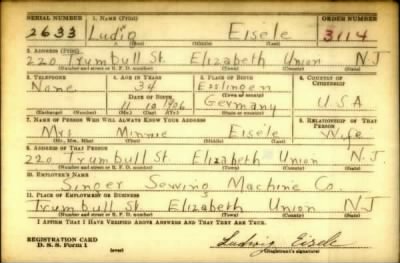 SERIAL NUMBER 1. NAME (Print) ORDER NUMBER
2633 Ludig Eisele 3114
(First) (Middle) (Last)
2. ADDRESS (Print)
220 Trumbull St. Elizabeth Union N J
(Number and street or R. F. D. number) (Town) (County) (State)
3. TELEPHONE 4. AGE IN YEARS 5. PLACE OF BIRTH 6. COUNTRY OF CITIZENSHIP
None 34 Esslingen
DATE OF BIRTH (Town or county)
11 10 1906 Germany U S A
(Exchange) (Number) (Mo.) (Day) (Yr.) (State or country)
7. NAME OF PERSON WHO WILL ALWAYS KNOW YOUR ADDRESS 8. RELATIONSHIP OF THAT PERSON
Mrs Minnie Eisele Wife
(Mr., Mrs., Miss) (First) (Middle) (Last)
9. ADDRESS OF THAT PERSON
220 Trumbull St. Elizabeth Union N-J
(Number and street or R. F. D. number) (Town) (County) (State)
10. EMPLOYER'S NAME
Singer Sewing Machine Co
11. PLACE OF EMPLOYMENT OR BUSINESS
Trumbull St. Elizabeth Union N J
(Number and street or R. F. D. number) (Town) (County) (State)
I AFFIRM THAT I HAVE VERIFIED ABOVE ANSWERS AND THAT THEY ARE TRUE.
REGISTRATION CARD
D. S. S. Form 1 (over) Ludwig Eisele
(Registrant's signature)